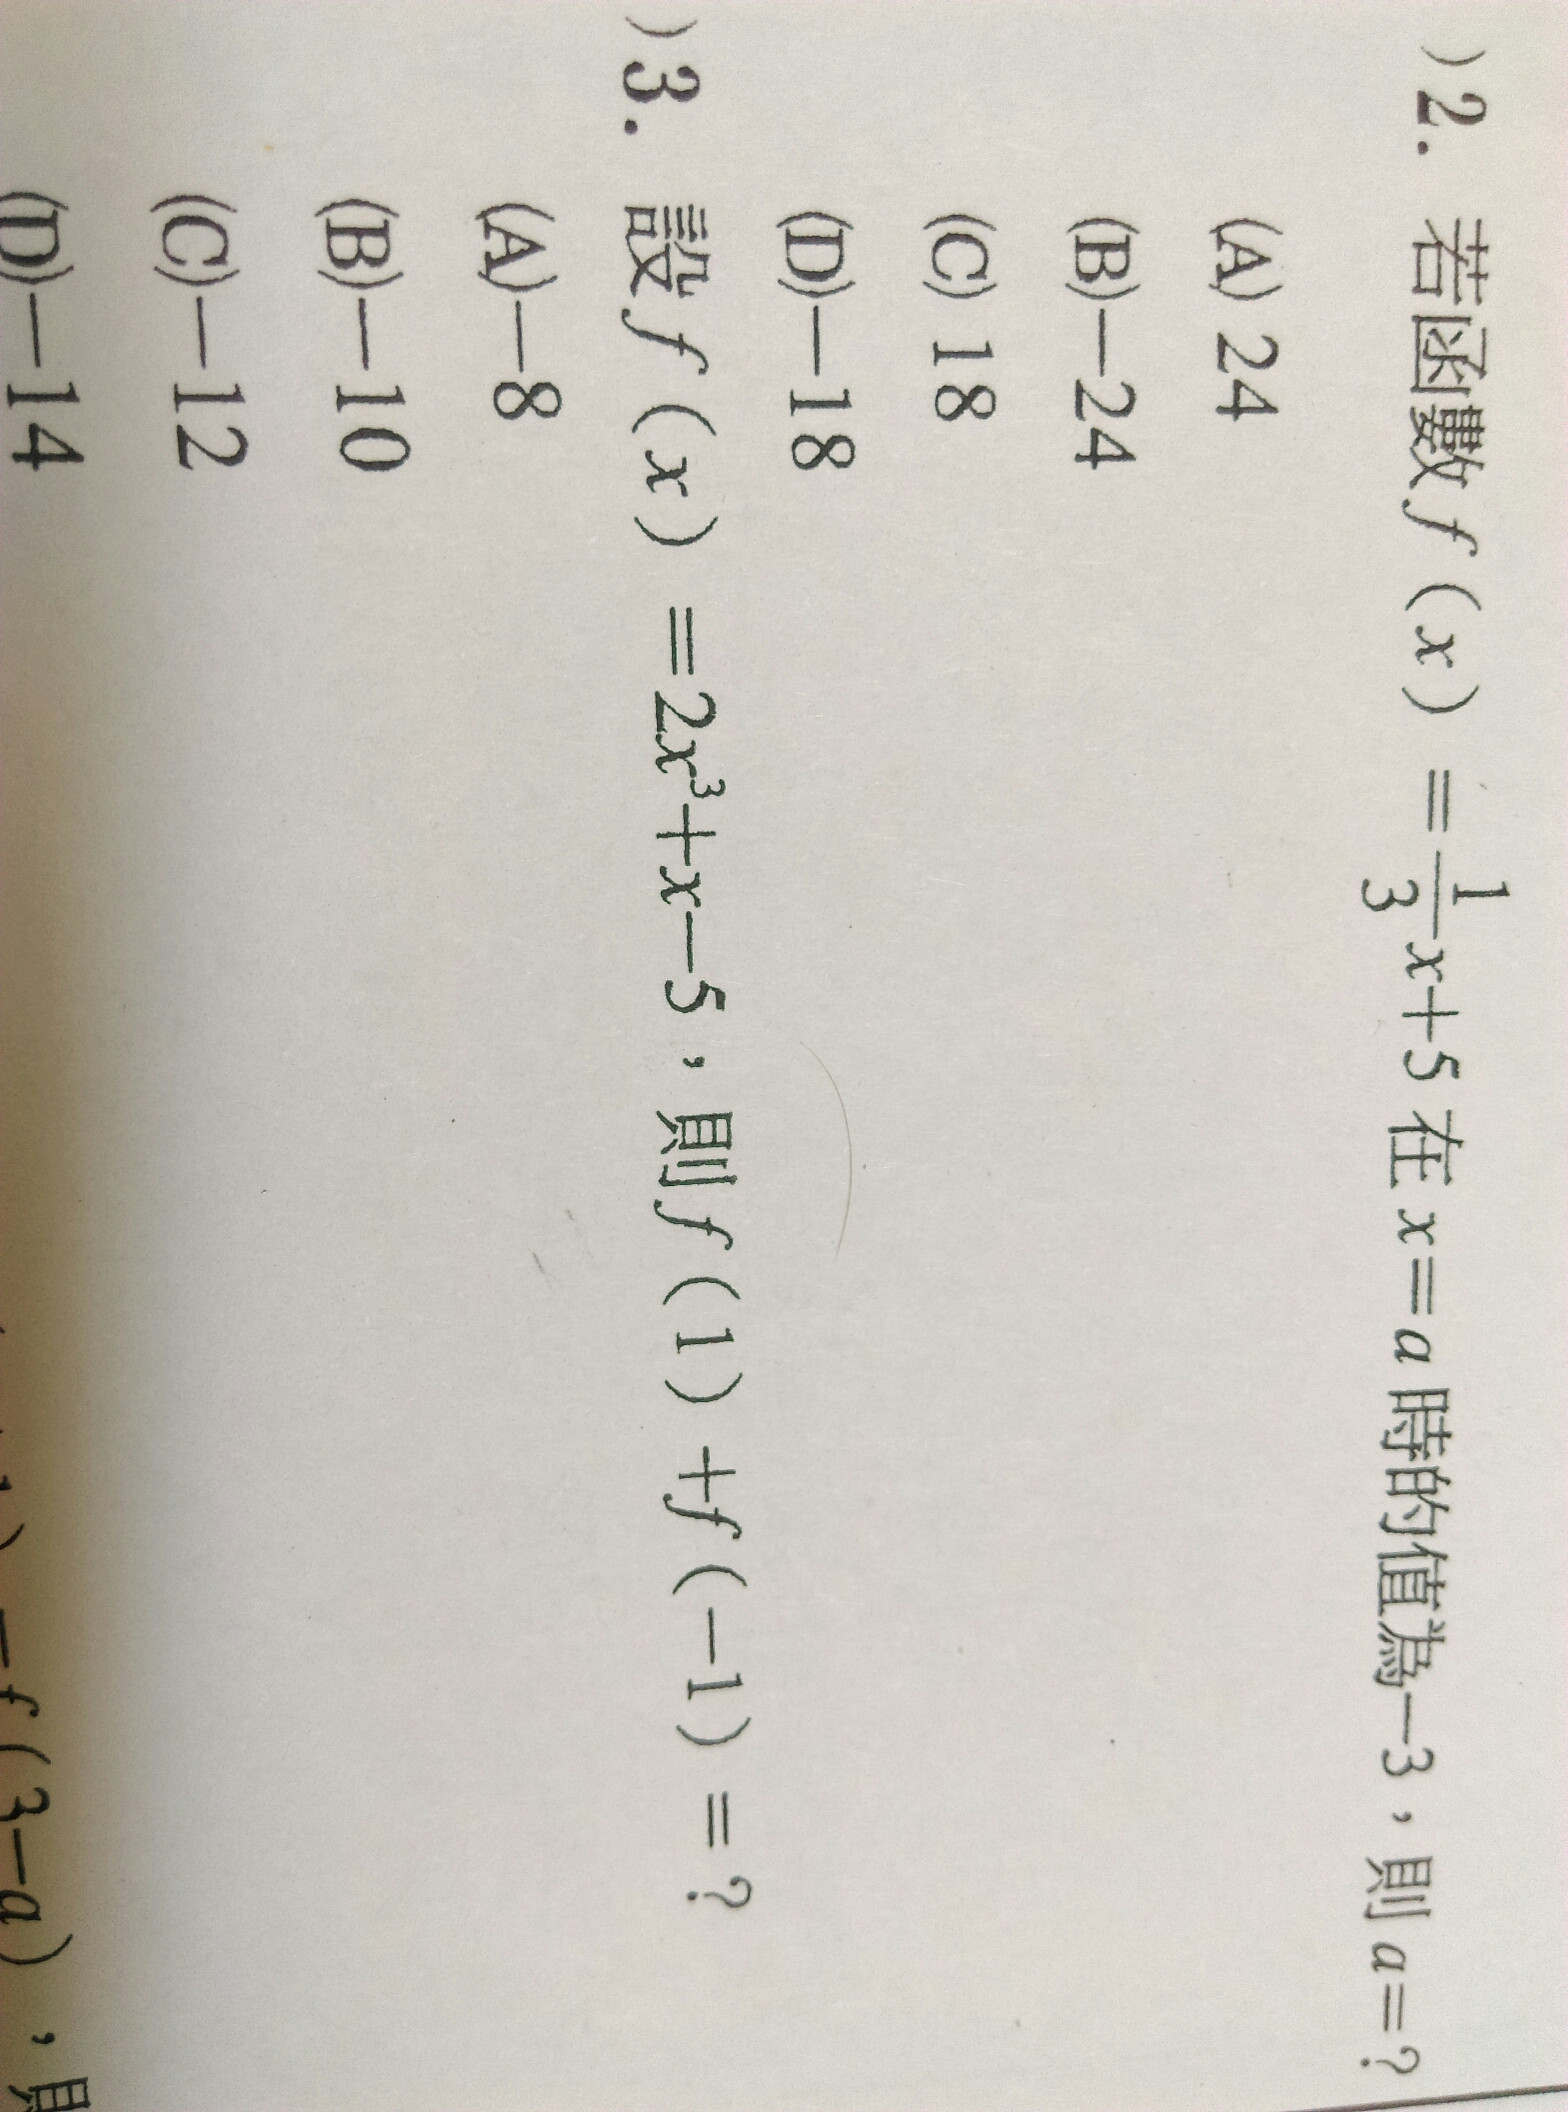 )2. 若函數 f(x) =1/3x+5 在 x=a 時的值為—3，則 a=?
(A) 24
(B)—24
(C) 18
(D)—18
)3. 設 f(x) =2x³+x—5，則 f(1)+f(—1) =?
(A)—8
(B)—10
(C)—12
(D)—14
f(3—a)，則